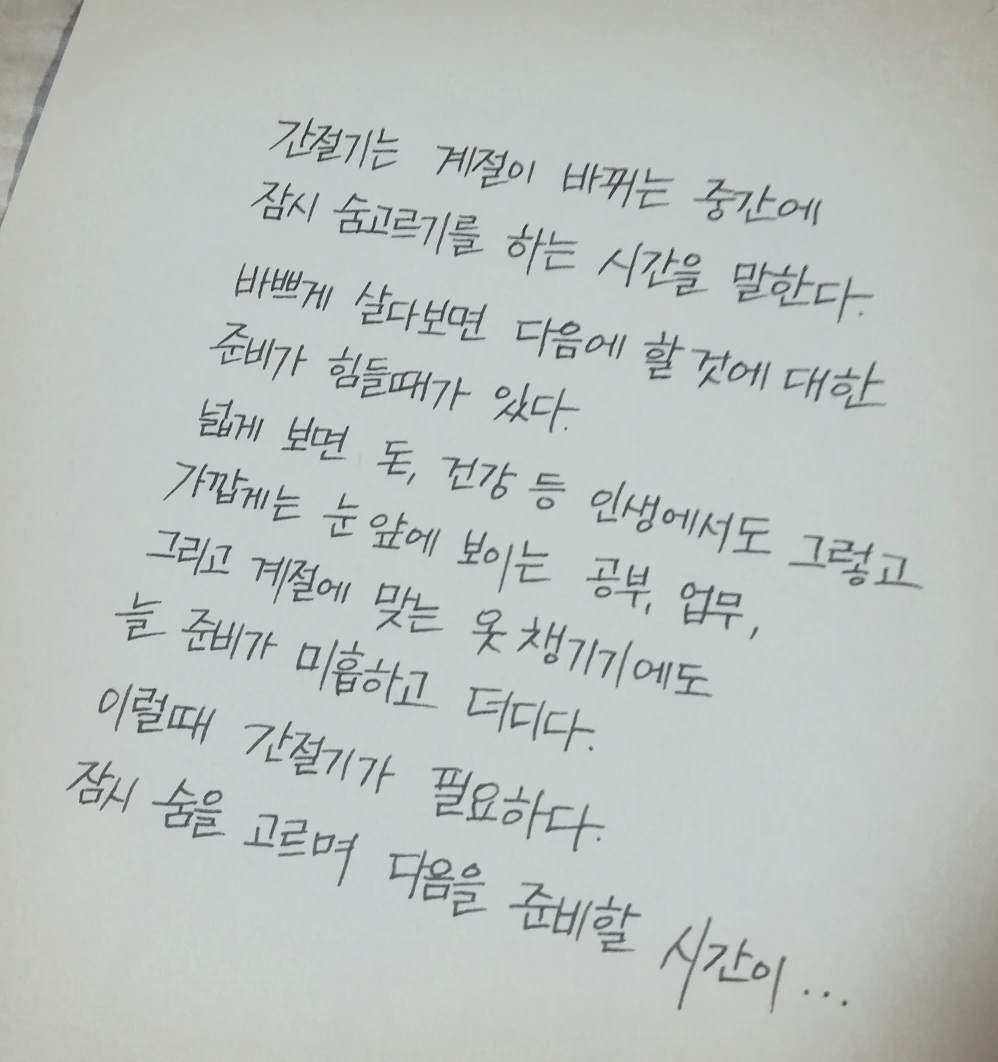 간절기는 계절이 바뀌는 중간에
잠시 숨고르기를 하는 시간을 말한다.
바쁘게 살다보면 다음에 할 것에 대한
준비가 힘들때가 있다.
넓게 보면 돈, 건강 등 인생에서도 그렇고
가깝게는 눈 앞에 보이는 공부, 업무,
그리고 계절에 맞는 옷 챙기기에도
늘 준비가 미흡하고 더디다.
이럴때 간절기가 필요하다.
잠시 숨을 고르며 다음을 준비할 시간이...